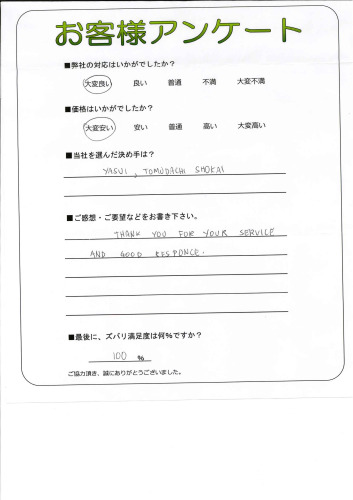 お客様アンケート
■弊社の対応はいかがでしたか?
大変良い 良い 普通 不満 大変不満
■価格はいかがでしたか?
大変安い 安い 普通 高い 大変高い
■当社を選んだ決め手は?
YASUI, TOMODACHI SHOKAI
■ご感想・ご要望などをお書き下さい。
THANK YOU FOR YOUR SERVICE
AND GOOD RESPONCE.
■最後に、ズバリ満足度は何%ですか?
100 %
ご協力頂き、誠にありがとうございました。